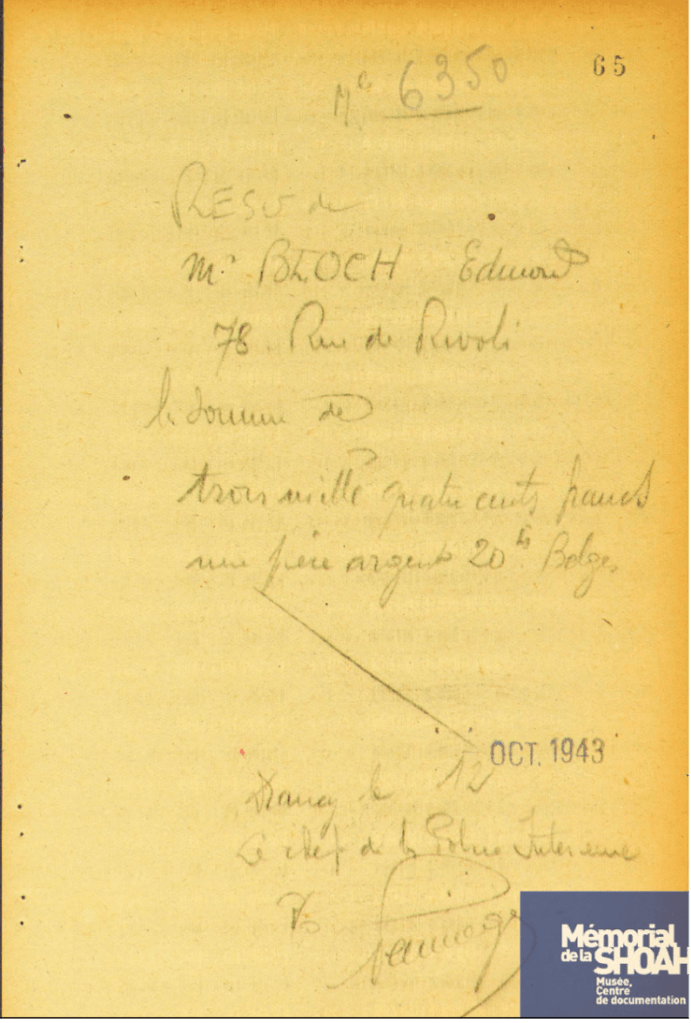 65
Mle 6350
RESU de
Mr BLOCH Edmond
78 Rue de Rivoli
la somme de
trois mille quatre cents francs
une pièce argent 20 frs Belges
OCT. 1943
Drancy le 12
Le chef de la Police Interieure
Mémorial
de la SHOAH
Musée,
Centre
de documentation